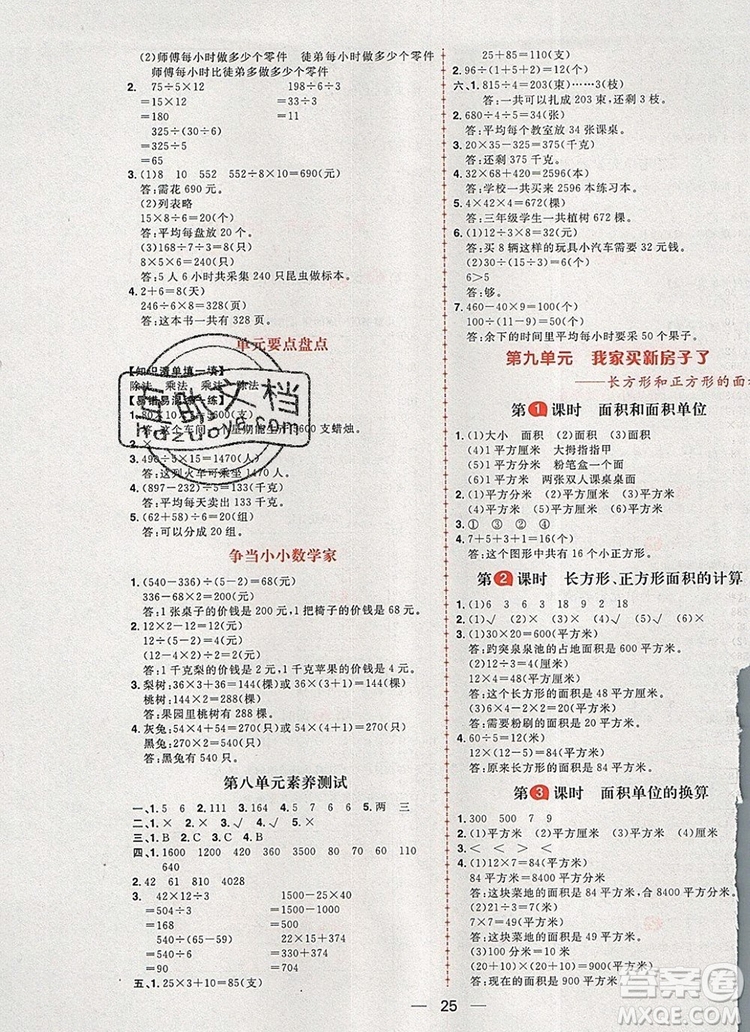 (2)师傅每小时做多少个零件　徒弟每小时做多少个零件
师傅每小时比徒弟多做多少个零件
2.　75÷5×12　　198÷6÷3
=15×12　　=33÷3
=180　　=11
325÷(30÷6)
=325÷5
=65
3. (1)8　10　552　552÷8×10=690(元)
答:需花690元。
(2)列表略
15×8÷6=20(个)
答:平均每盘放20个。
(3)168÷7÷3=8(只)
8×5×6=240(只)
答:5人6小时共采集240只昆虫做标本。
4. 2+6=8(天)
246÷6×8=328(页)
答:这本书一共有328页。
单元要点盘点
【知识清单填一填】
除法　乘法　乘法　除法
【易错易混练一练】
3600(支)
答:这个车间一个星期能生产3600支蜡烛。
2.×
3. 490÷5×15=1470(人)
答:这列火车可乘坐1470人。
4. (897-232)÷5=133(千克)
答:平均每天卖出133千克。
5. (62+58)÷6=20(组)
答:可以分成20组。
争当小小数学家
1. (540-336)÷(5-2)=68(元)
336-68×2=200(元)
答:1张桌子的价钱是200元,1把椅子的价钱是68元。
2. 12×2-12=12(元)
12÷(5-2)=4(元)
(12-4×2)÷2=2(元)
答:1千克梨的价钱是2元,1千克苹果的价钱是4元。
3. 梨树:36×3+36=144(棵)或36×(3+1)=144(棵)
桃树:144×2=288(棵)
答:果园里桃树有288棵。
4. 灰兔:90×3-90=180(只)或90×(3-1)=180(只)
黑兔:180×3=540(只)
答:黑兔有540只。
第八单元素养测试
一、1. 5　6　2. 12　3. 111　3. 164　4. 5　7　5. 两　三
二、1.×　2.√　3.×　4.√　5.×
三、1. B　2. C　3. B　4. C
四、1. 1600　1200　80　1260　3500　80　880
1360
2. 42　61　810　4028
3.　42×(12÷3)　　1500-25×40
=42×4　　=1500-1000
=168　　=500
540÷(18÷3)　　22×(35-10)
=540÷6　　=22×25
=90　　=550
五、1. 25×3+10=85(支)
25+85=110(支)
2. 96÷(1+5+2)=12(只)
六、1. 815÷4=203(束)……3(枝)
答:一共可以扎成203束,还剩3枝。
2. 680÷4÷5=34(张)
答:平均每个教室放34张课桌。
3. 77×5+35=420(千克)
答:还剩420千克。
4. 32×68+420=2596(本)
答:学校一共买来2596本练习本。
5. (48+54)×4=408(棵)
答:三年级学生一共植树408棵。
6. (1)12÷3×8=32(元)
答:买8辆这样的玩具小汽车需要32元。
(2)30÷(12÷3)=7(辆)……2(元)
6>5
答:够。
7. 460-40×9=100(个)
100÷(11-9)=50(个)
答:余下的时间里,平均每小时要采50个果子。
第九单元　我家买新房子了
——长方形和正方形的面
第1课时　面积和面积单位
1. (1)大小　面积　(2)面积　(3)面积
(4)1平方厘米　大拇指指甲
(5)1平方分米　粉笔盒一个面
(6)1平方米　两张双人课桌桌面
2. (1)平方分米　(2)平方米　(3)平方厘米
3. ①　③　②　④
4. 7+5+3+1=16(个)
答:这个图形中共有16个小正方形。
第2课时　长方形、正方形面积的计算
1. (1)6　3　18　3　6　18　9　2　18
2. (1)×　(2)√　(3)×　(4)√　(5)√　(6)×
3. (1)30×20=600(平方米)
答:趵突泉泉池的占地面积是600平方米。
(2)12÷3=4(米)　12×4=48(平方米)
答:这个长方形的面积是48平方米。
(3)9×6-2×3=48(平方米)
答:需要粉刷的面积是48平方米。
4. 8÷2=4(米)　10÷2=5(米)
4×5=20(平方米)
答:原来长方形的面积是20平方米。
第3课时　面积单位的换算
1. 300　500　7　9
2. (1)平方米　(2)平方分米　(3)厘米　(4)平方厘米
3. <　<　>　<
4. (1)12×7=84(平方米)
84×10=840(千克)
答:这块菜地的面积是84平方米,共收蔬菜840千克。
(2)21÷3=7(米)
7×7=49(平方米)
答:这块菜地的面积是49平方米。
(3)(20+10)×(20+10)=900(平方米)
(20+10)×20=600(平方米)
答:现在长方形的面积
25
互助文档
Hdzuoye.com
答案圈
MXQE.COM